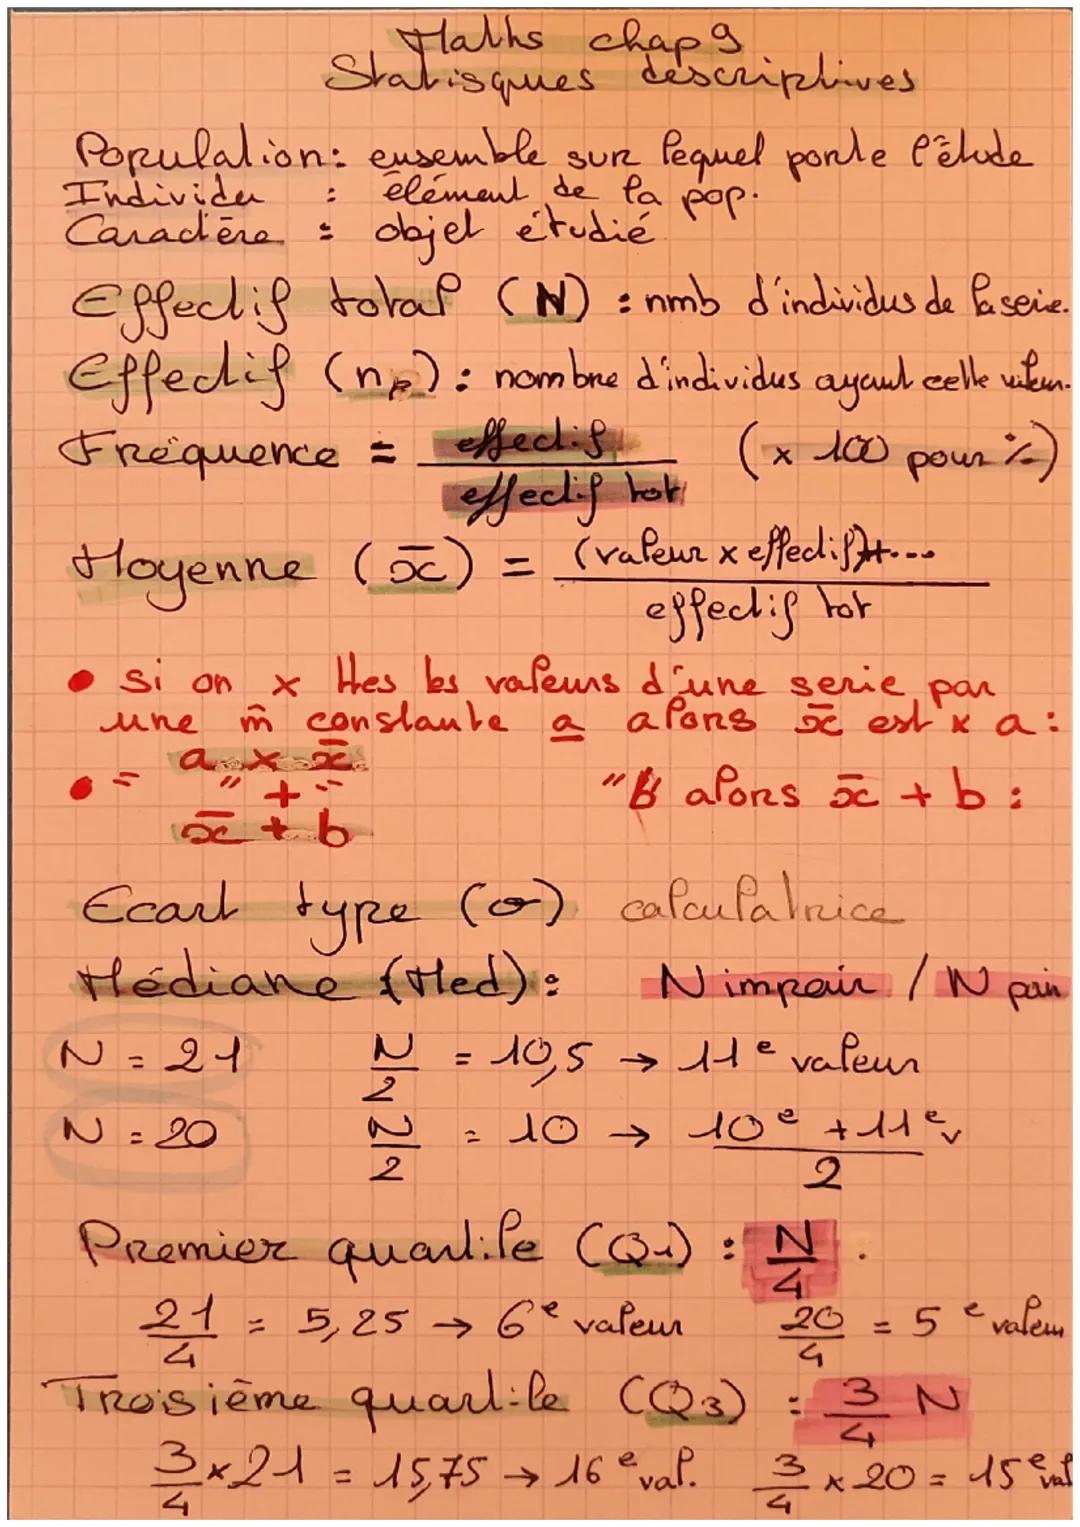 Maths chap 9
Statisques descriptives
Population: ensemble sur lequel porte l'étude
Individu : élément de la pop.
Caractère : objet étudié
Effectif total (N) : nmb d'individus de la serie.
Effectif (np) : nombre d'individus ayant cette valeur.
Fréquence = effectif / effectif tot (x 100 pour %)
Moyenne (x̄) = (valeur x effectif)+... / effectif tot
• si on x ttes les valeurs d'une serie par
une m̂ constante a alors x̄ est x a :
a x x̄
• = " + " " b alors x̄ + b :
x̄ + b
Ecart type (σ) calculatrice
Médiane (Med) : N impair / N pair
N = 21 N/2 = 10,5 → 11e valeur
N = 20 N/2 = 10 → 10e + 11e v / 2
Premier quartile (Q1) : N/4 .
21/4 = 5,25 → 6e valeur 20/4 = 5e valeur
Troisième quartile (Q3) : 3/4 N
3/4 x 21 = 15,75 → 16e val. 3/4 x 20 = 15e val